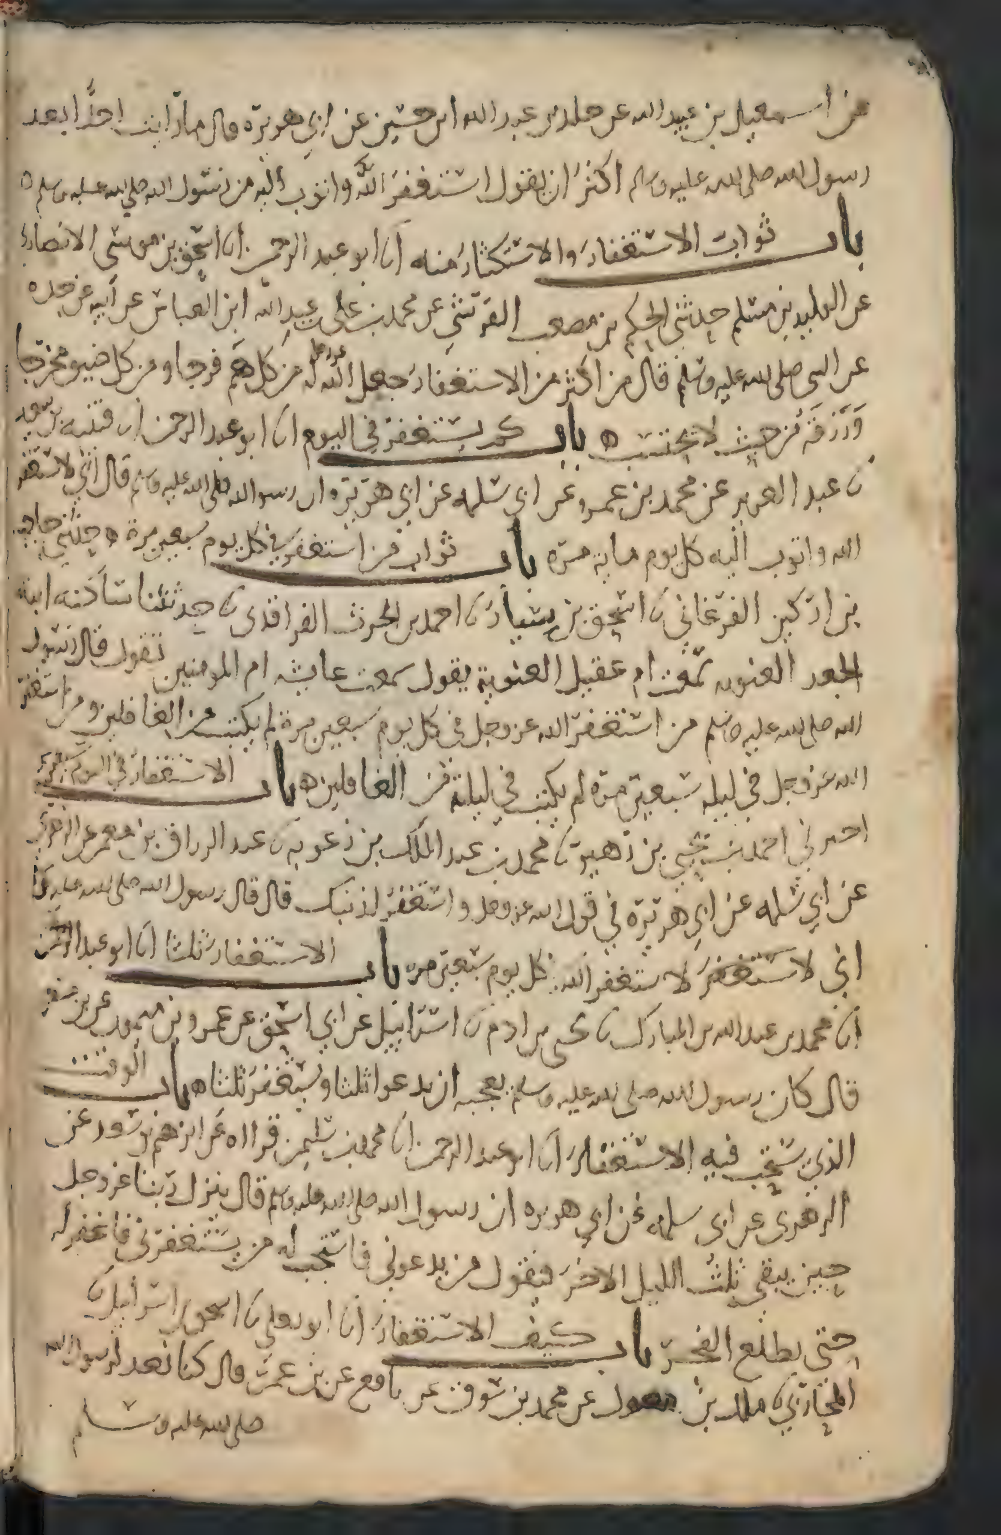 عن اسمعيل بن عبيد الله عن خلد بن عبد الله ابن حسين عن ابي هريرة قال ما رايت احدًا بعد
رسول الله صلى الله عليه وسلم اكثر ان يقول استغفر الله واتوب اليه من رسول الله صلى الله عليه وسلم ه
باب ثواب الاستغفار والاستكثار منه انا ابو عبد الرحمن انا اسحق بن موسى الانصاري
عن الوليد بن مسلم حدثني الحكم بن مصعب القرشي عن محمد بن علي بن عبد الله ابن العباس عن ابيه عن جده
عن النبي صلى الله عليه وسلم قال من اكثر من الاستغفار جعل الله عز وجل له من كل هم فرجا ومن كل ضيق مخرجا
ورزقه من حيث لا يحتسب ه باب كم يستغفر في اليوم انا ابو عبد الرحمن انا قتيبة بن سعيد
نا عبد العزيز عن محمد بن عمرو عن ابي سلمه عن ابي هريرة ان رسول الله صلى الله عليه وسلم قال اني لاستغفر
الله واتوب اليه كل يوم مايه مرة باب ثواب من استغفر في كل يوم سبعين مرة ه حدثني حاجب
بن اركين الفرغاني نا اسحق بن سيار نا احمد بن الحرث الغراقدي نا حدثتنا ساكنه ابنة
الجعد الغنويه سمعت ام عقيل الغنوية يقول سمعت عايشه ام المومنين تقول قال رسول
الله صلى الله عليه وسلم من استغفر الله عز وجل في كل يوم سبعين مرة لم يكتب من الغافلين ومن استغفر
الله عز وجل في ليله سبعين مرة لم يكتب في ليلته من الغافلين ه باب الاستغفار في اليوم سبعين مرة
اخبرني احمد بن يحيى بن زهير نا محمد بن عبد الملك بن زنجويه نا عبد الرزاق عن معمر عن الزهري
عن ابي سلمه عن ابي هريرة في قول الله عز وجل واستغفر لذنبك قال قال رسول الله صلى الله عليه وسلم
اني لاستغفر لاستغفر الله كل يوم سبعين مره باب الاستغفار ثلثا انا ابو عبد الرحمن
انا محمد بن عبد الله بن المبارك نا يحيى بن ادم نا اسرائيل عن ابي اسحق عن عمرو بن ميمون عن بن مسعود
قال كان رسول الله صلى الله عليه وسلم يعجبه ان يدعوا ثلثا ويستغفر ثلثا ه باب الوقت
الذي يستحب فيه الاستغفار انا ابو عبد الرحمن انا محمد بن سليمن قراءه عن ابرهيم بن سعد عن
الزهري عن ابي سلمه عن ابي هريره ان رسول الله صلى الله عليه وسلم قال ينزل ربنا عز وجل
حين يبقى ثلث الليل الاخر فيقول من يدعوني فاستجب له من يستغفرني فاغفر له
حتى يطلع الفجر باب كيف الاستغفار انا ابو يعلى نا اسحق بن اسرائيل نا
المحاربي نا ملك بن مغول عن محمد بن سوقه عن نافع عن بن عمر قال كنا نعد لرسول الله
صلى الله عليه وسلم